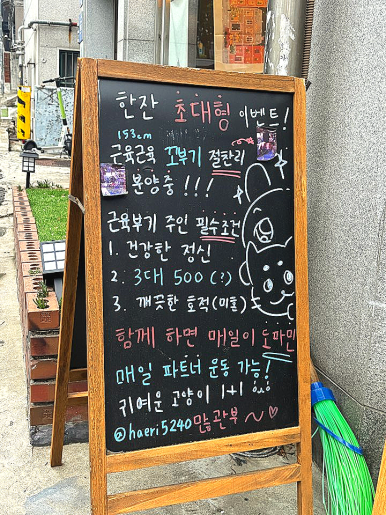 한잔 초대형 이벤트!
153cm
근육근육 꼬부기 절찬리
분양중!!!
근육부기 주인 필수조건
1. 건강한 정신
2. 3대 500(?)
3. 깨끗한 호적(미혼)
함께 하면 매일이 도파민
매일 파트너 운동 가능!
귀여운 고양이 1+1
@haeri5240 많관부~♡